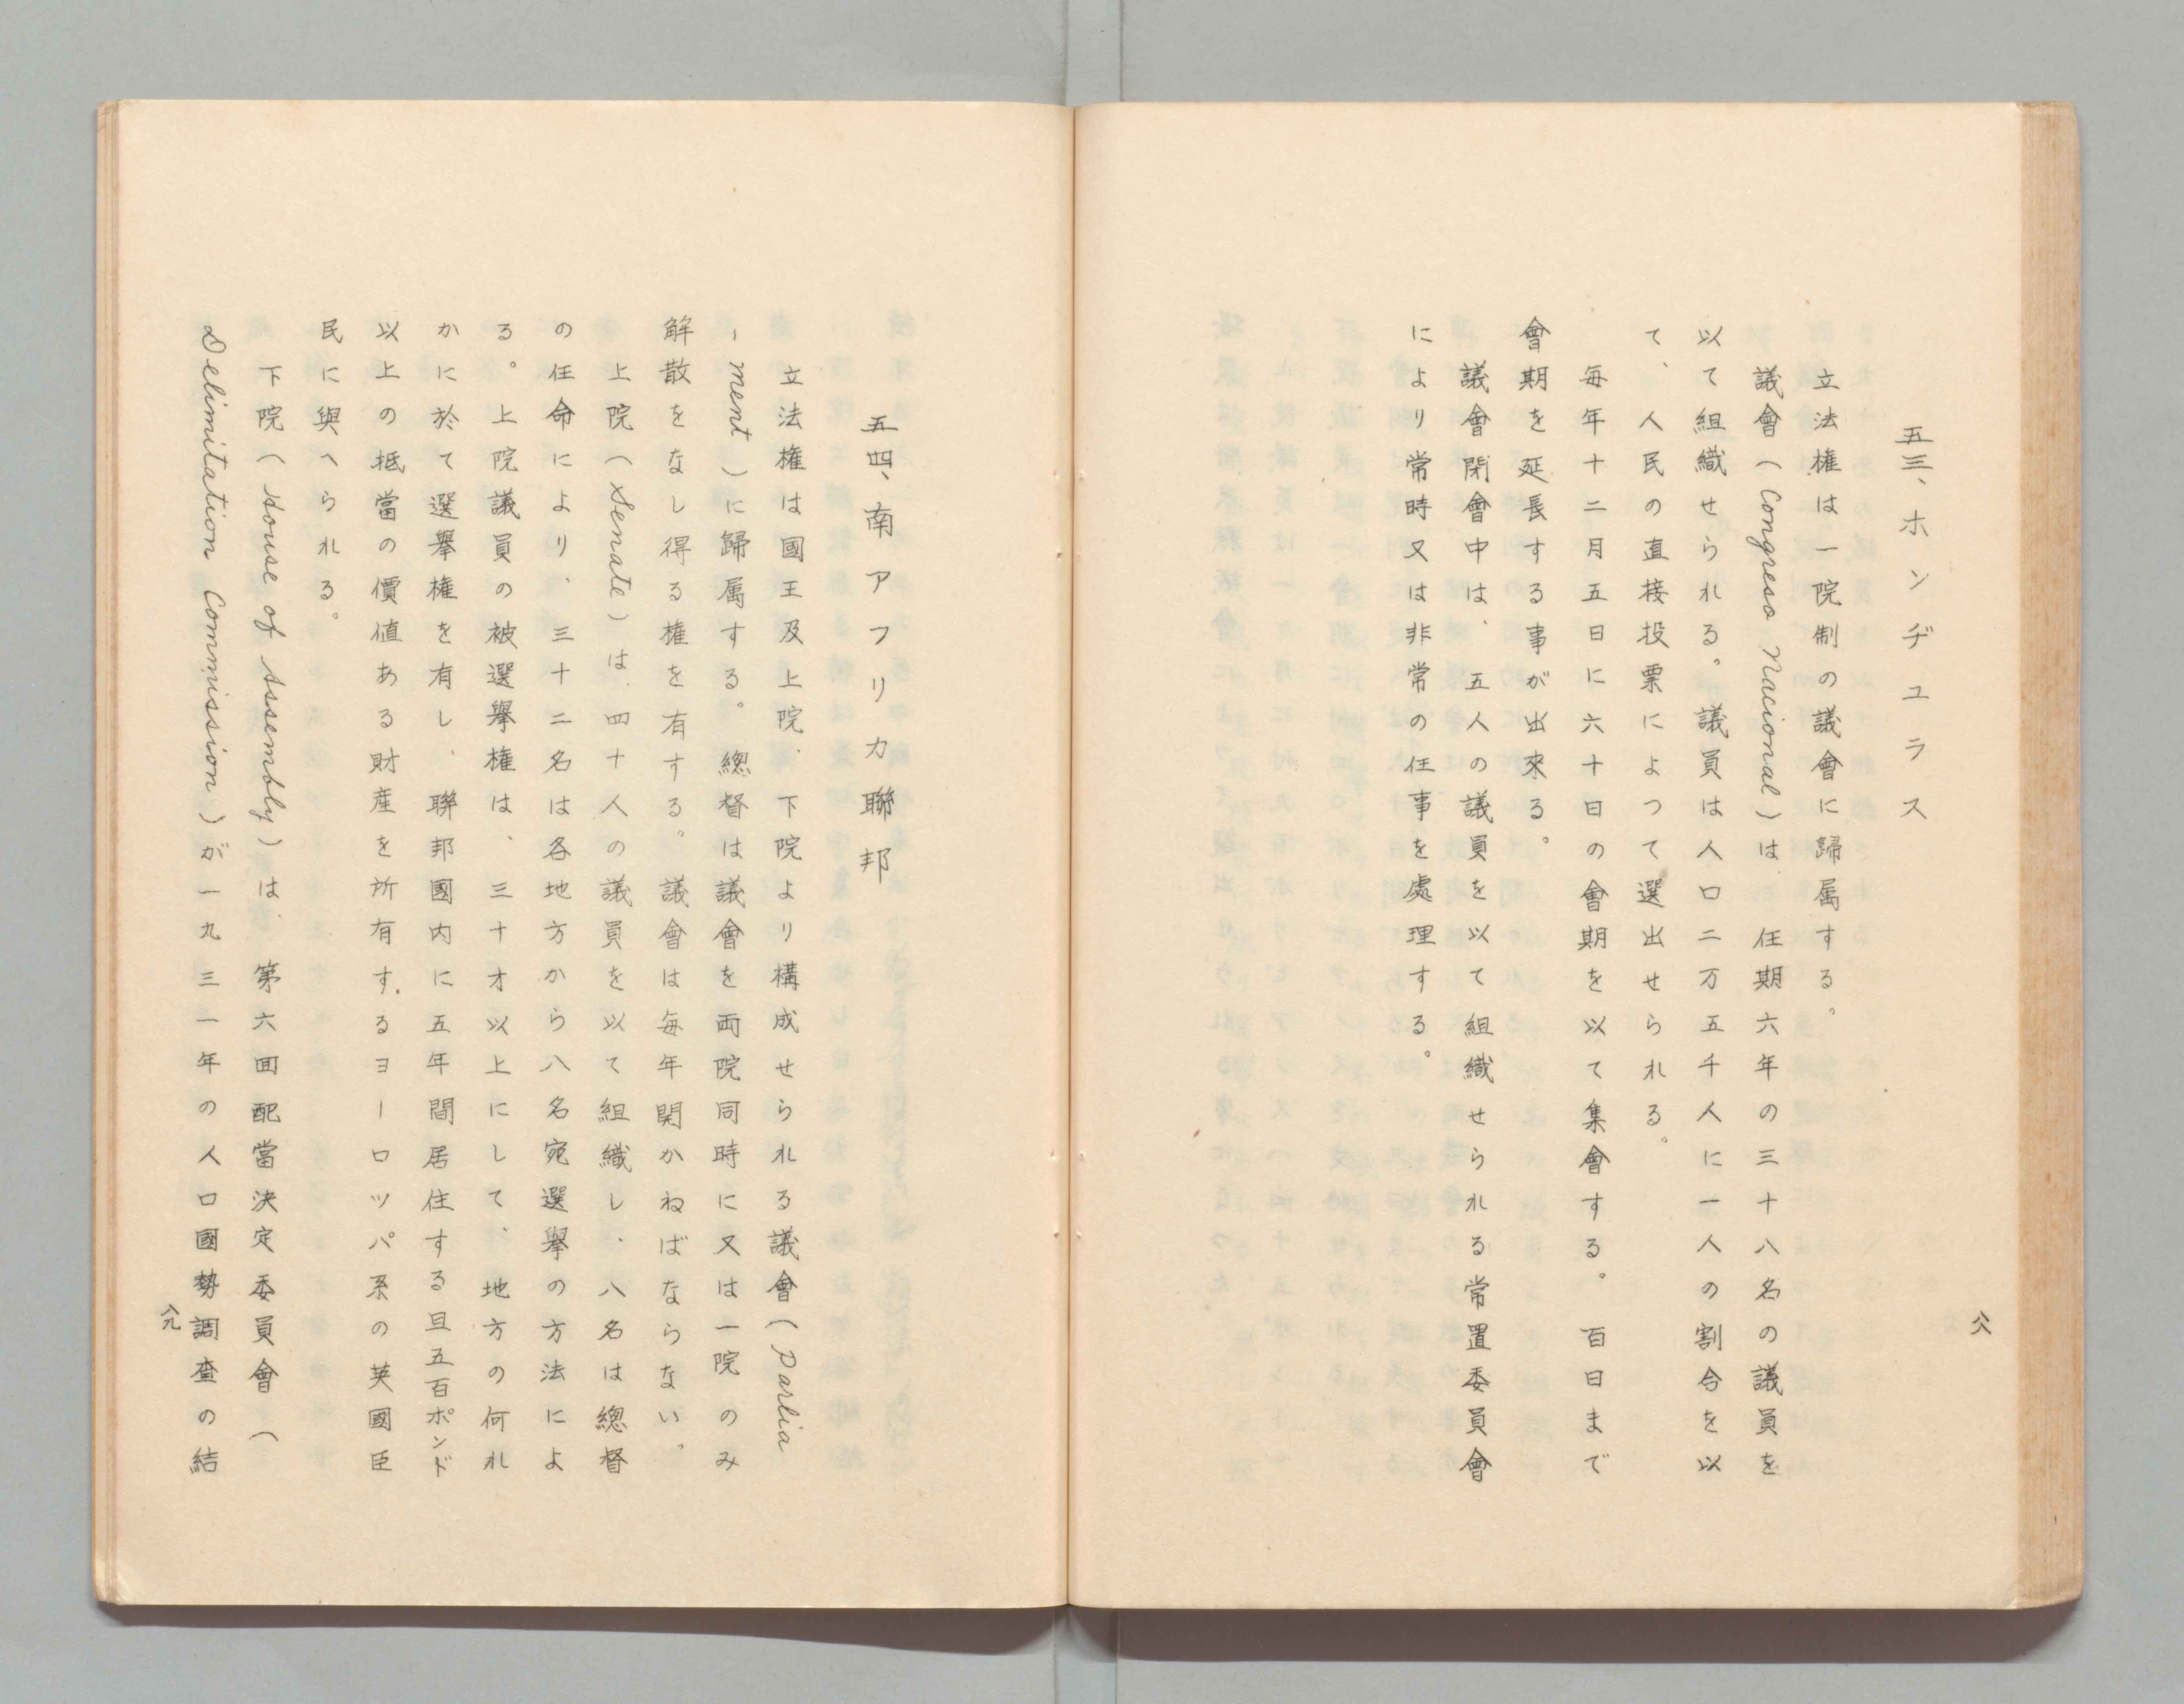 五三、ホンヂユラス
立法権は一院制の議會に歸属する。
議會(Congreso Nacional)は、任期六年の三十八名の議員を
以て組織せられる。議員は人口二万五千人に一人の割合を以
て、人民の直接投票によつて選出せられる。
毎年十二月五日に六十日の會期を以て集會する。百日まで
會期を延長する事が出來る。
議會閉會中は、五人の議員を以て組織せられる常置委員會
により常時又は非常の任事を處理する。
八八
五四、南アフリカ聯邦
立法権は國王及上院、下院より構成せられる議會(Parlia
-ment)に歸属する。總督は議會を両院同時に又は一院のみ
解散をなし得る権を有する。議會は毎年開かねばならない。
上院(Senate)は、四十人の議員を以て組織し、八名は總督
の任命により、三十二名は各地方から八名宛選擧の方法によ
る。上院議員の被選擧権は、三十才以上にして、地方の何れ
かに於て選擧権を有し、聯邦國内に五年間居住する旦五百ポンド
以上の抵當の價値ある財産を所有するヨーロツパ系の英國臣
民に與へられる。
下院(House of Assembly)は、第六回配當決定委員會(
Delimitation Commission)が一九三一年の人口國勢調査の結
八九